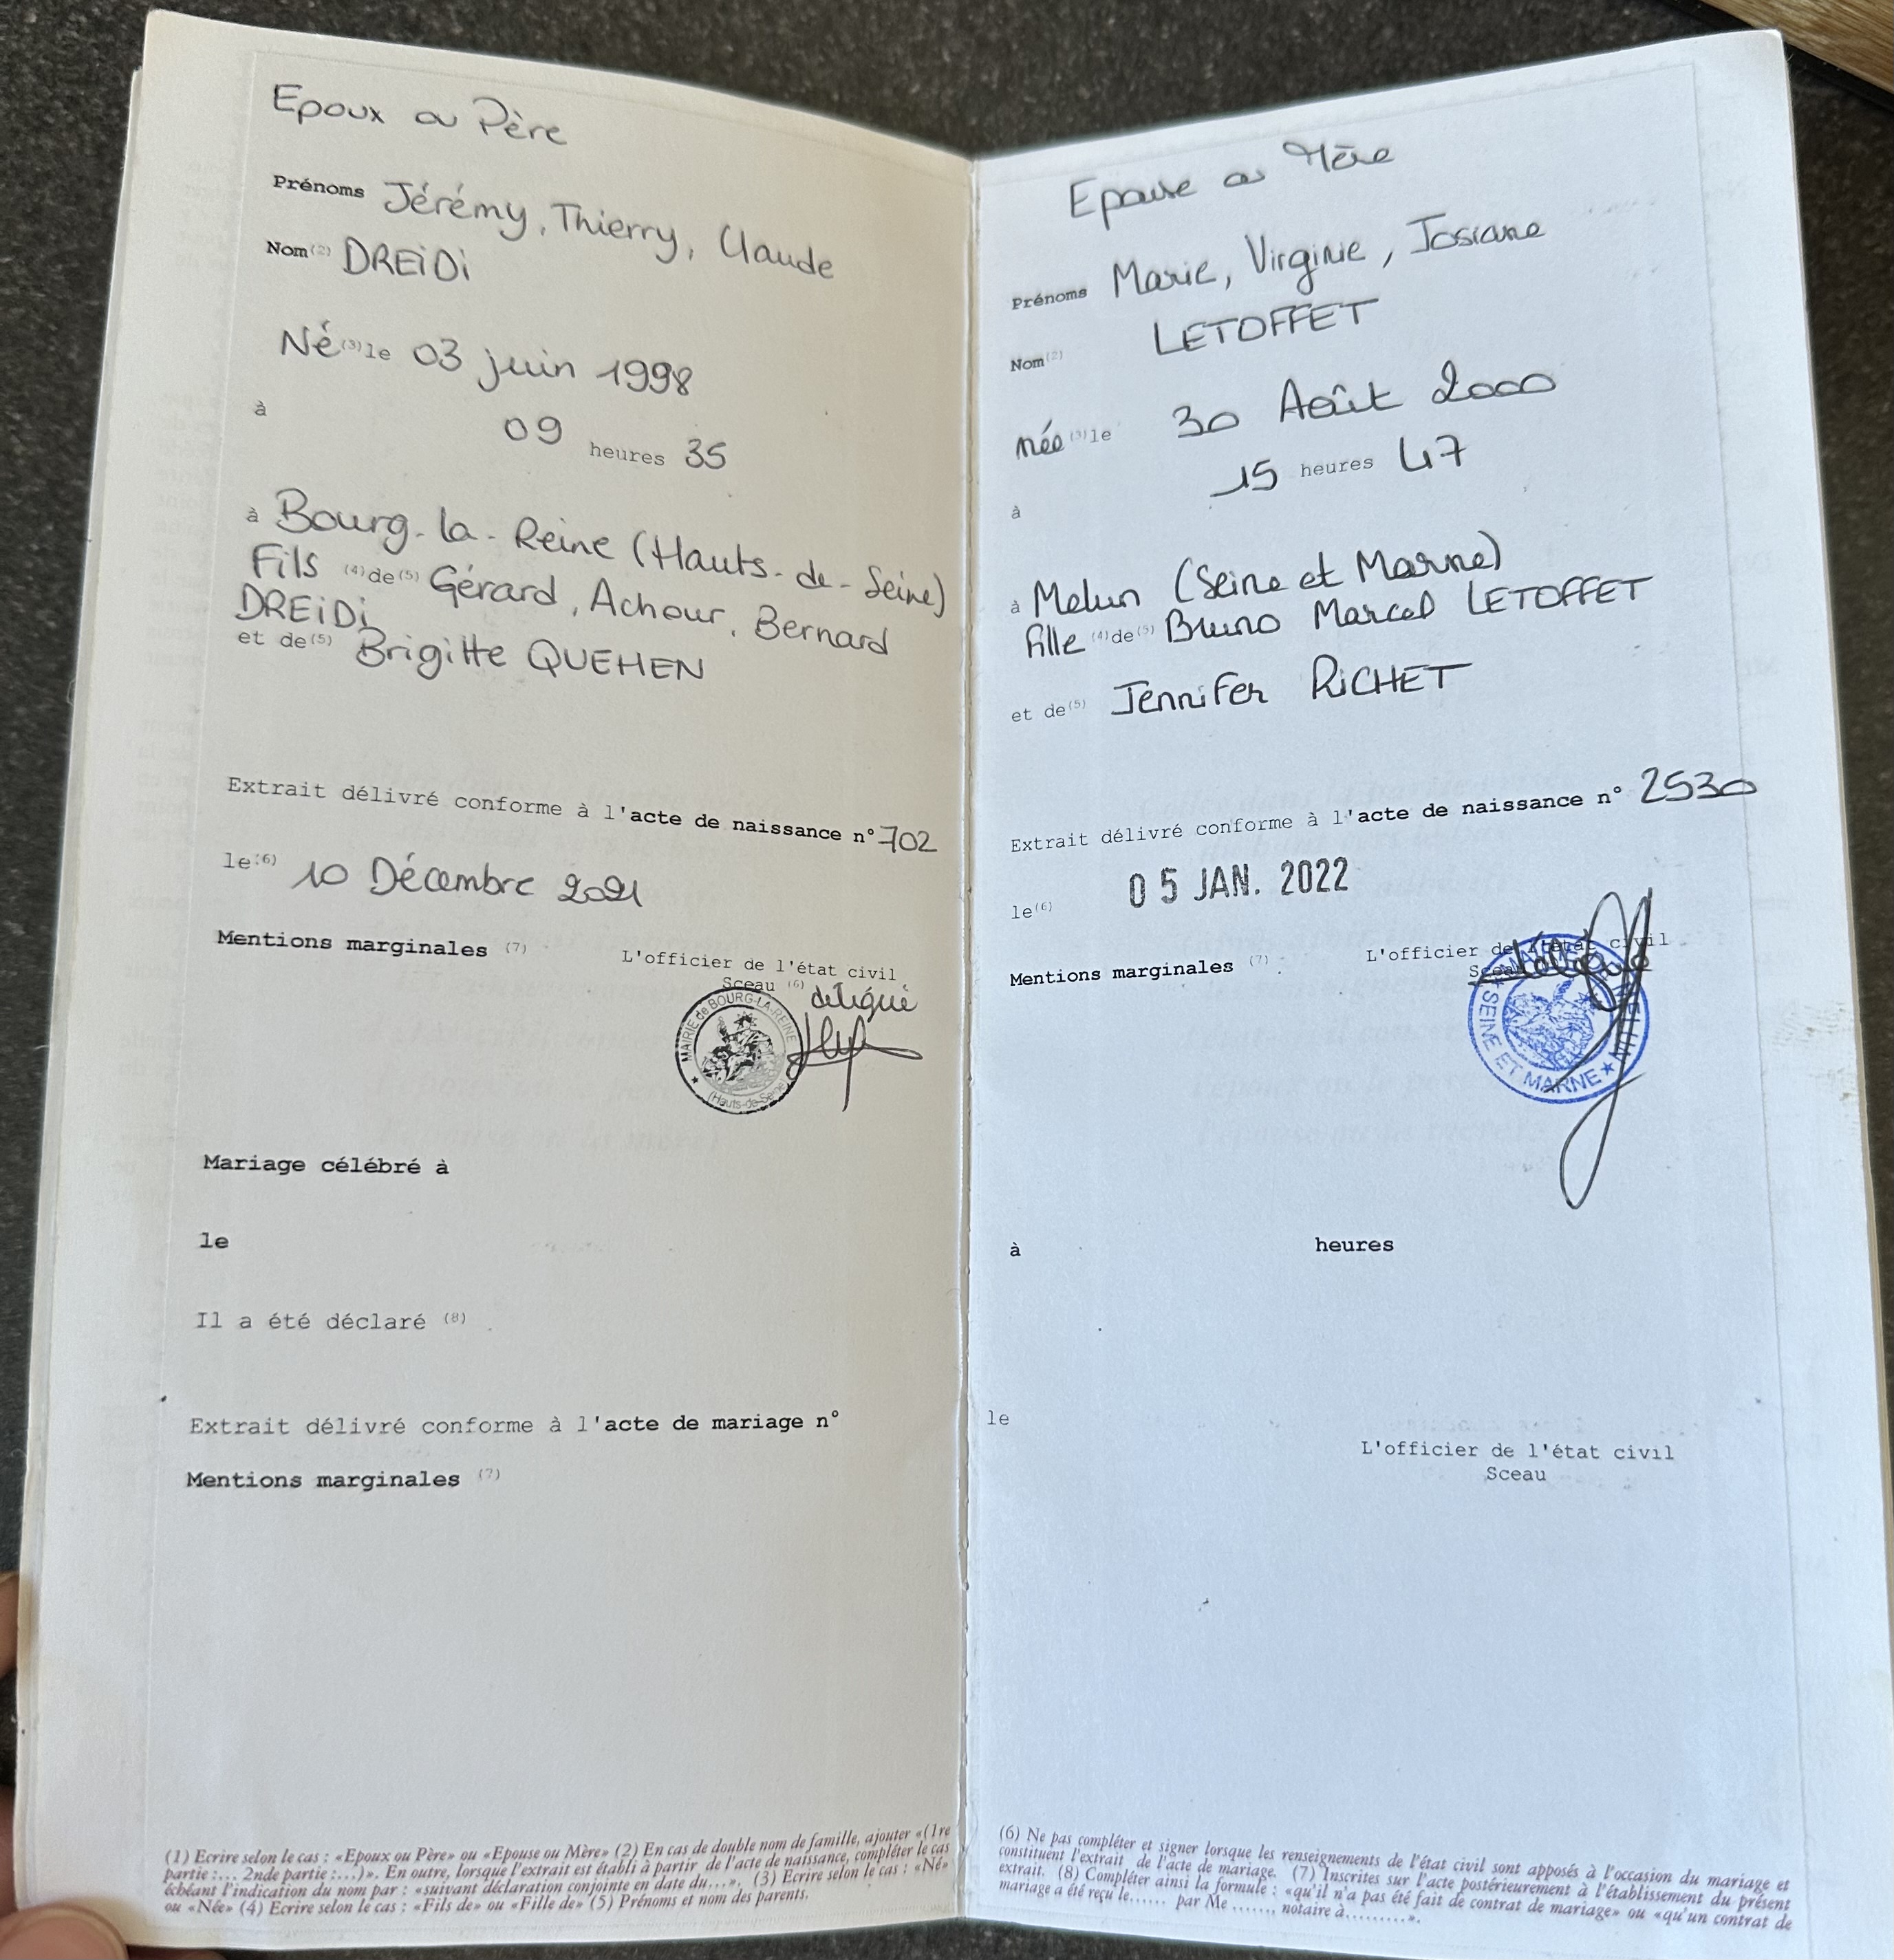 Epoux ou Père
Prénoms Jérémy, Thierry, Claude
Nom (2) DREiDi
Né (3) le 03 juin 1998
à 09 heures 35
à Bourg-la-Reine (Hauts-de-Seine)
Fils (4) de (5) Gérard, Achour, Bernard
DREiDi
et de (5) Brigitte QUEHEN
Extrait délivré conforme à l'acte de naissance n° 702
le (6) 10 Décembre 2021
Mentions marginales (7)
L'officier de l'état civil
Sceau (6) délégué
MAIRIE de BOURG-LA-REINE
(Hauts-de-Seine)
Mariage célébré à
le
Il a été déclaré (8)
Extrait délivré conforme à l'acte de mariage n°
Mentions marginales (7)
(1) Ecrire selon le cas : «Epoux ou Père» ou «Epouse ou Mère» (2) En cas de double nom de famille, ajouter «(1re
partie :... 2nde partie :...)». En outre, lorsque l'extrait est établi à partir de l'acte de naissance, compléter le cas
échéant l'indication du nom par : «suivant déclaration conjointe en date du...». (3) Ecrire selon le cas : «Né»
ou «Née» (4) Ecrire selon le cas : «Fils de» ou «Fille de» (5) Prénoms et nom des parents.
Epouse ou Mère
Prénoms Marie, Virginie, Josiane
Nom (2) LETOFFET
née (3) le 30 Août 2000
à 15 heures 47
à Melun (Seine et Marne)
fille (4) de (5) Bruno Marcel LETOFFET
et de (5) Jennifer RiCHET
Extrait délivré conforme à l'acte de naissance n° 2530
le (6) 05 JAN. 2022
Mentions marginales (7)
L'officier de l'état civil
Sceau
SEINE ET MARNE
à heures
le
L'officier de l'état civil
Sceau
(6) Ne pas compléter et signer lorsque les renseignements de l'état civil sont apposés à l'occasion du mariage et
constituent l'extrait de l'acte de mariage. (7) Inscrites sur l'acte postérieurement à l'établissement du présent
extrait. (8) Compléter ainsi la formule : «qu'il n'a pas été fait de contrat de mariage» ou «qu'un contrat de
mariage a été reçu le...... par Me ......., notaire à.........».